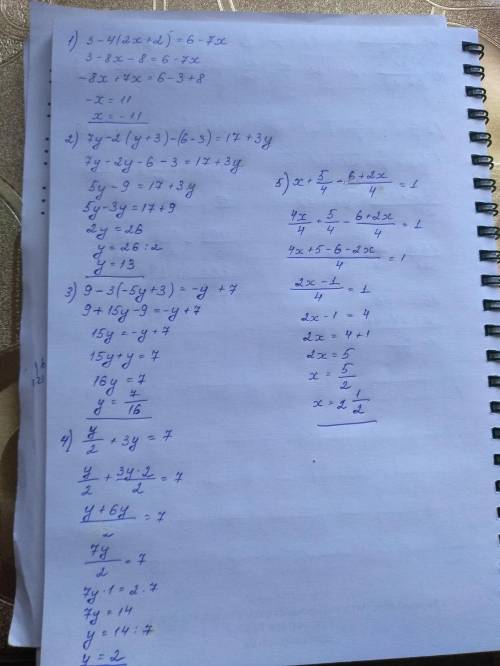 1) 3-4(2x+2)=6-7x
3-8x-8=6-7x
-8x+7x=6-3+8
-x=11
x=-11
2) 7y-2(y+3)-(6-3)=17+3y
7y-2y-6-3=17+3y
5y-9=17+3y
5y-3y=17+9
2y=26
y=26:2
y=13
3) 9-3(-5y+3)=-y+7
9+15y-9=-y+7
15y=-y+7
15y+y=7
16y=7
y=7/16
4) y/2+3y=7
y/2+3y·2/2=7
y+6y/2=7
7y/2=7
7y·1=2·7
7y=14
y=14:7
y=2
5) x+5/4-6+2x/4=1
4x/4+5/4-6+2x/4=1
4x+5-6-2x/4=1
2x-1/4=1
2x-1=4
2x=4+1
2x=5
x=5/2
x=2 1/2